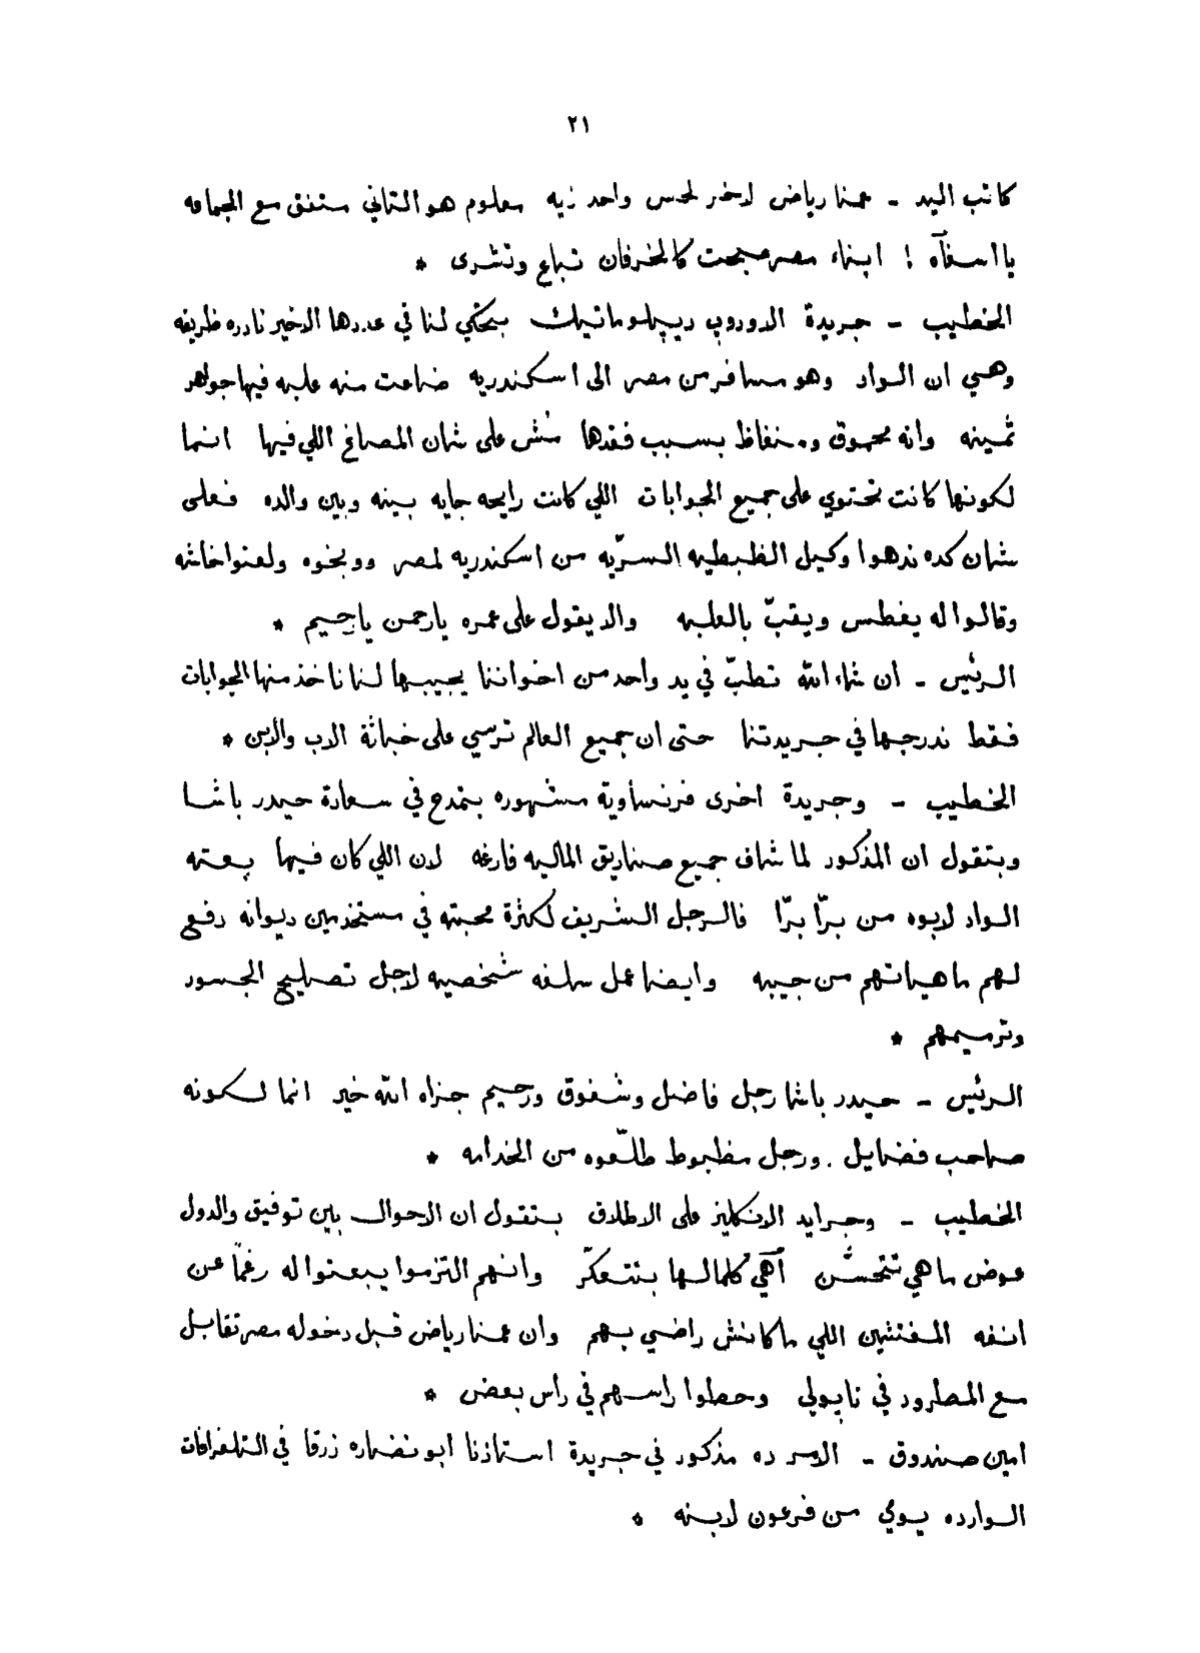 ٢١
كاتب اليد - عمنا رياض لاخر لحس واحد زيه معلوم هو التاني متفق مع الجماعه
يا اسفآه ! ابناء مصر صبحت كالخرفان تباع وتشرى *
الخطيب - جريدة الاوروب ديپلوماتيك بتحكي لنا في عددها الاخير نادره ظريفه
وهي ان الواد وهو مسافر من مصر الى اسكندريه ضاعت منه علبه فيها جواهر
ثمينه وانه محموق ومنغاظ بسبب فقدها مُش على شان المصاغ اللي فيها انما
لكونها كانت تحتوي على جميع الجوابات اللي كانت رايحه جايه بينه وبين والده فعلى
شان كده ندهوا وكيل الظبطيه السرّيه من اسكندريه لمصر ووبخوه ولعنوا خاشه
وقالوا له يغطس ويقبّ بالعلبه والا يقول على عمره يارحمن يارحيم *
الرئيس - ان شاء الله تطبّ في يد واحد من اخواننا يجيبها لنا ناخذ منها الجوابات
فقط ندرجها في جريدتنا حتى ان جميع العالم ترسي على خباثة الاب والابن *
الخطيب - وجريدة اخرى فرنساوية مشهوره بتمدح في سعادة حيدر باشا
وبتقول ان المذكور لما شاف جميع صناديق الماليه فارغه لان اللي كان فيها بعته
الواد لابوه من برّا برّا فالرجل الشريف لكثرة محبته في مستخدمين ديوانه دفع
لهم ماهياتهم من جيبه وايضا عمل سلفه شخصيه لاجل تصليح الجسور
وترميمهم *
الرئيس - حيدر باشا رجل فاضل وشفوق ورحيم جزاه الله خير انما لكونه
صاحب فضايل . ورجل مظبوط طلّعوه من الخدامه *
الخطيب - وجرايد الانكليز على الاطلاق بتقول ان الاحوال بين توفيق والدول
عوض ماهي تتحسّن آهي كلما لها بتتعكّر وانهم التزموا يبعتوا له رغماً عن
انفه المفتشين اللي ما كانش راضي بهم وان عمنا رياض قبل دخوله مصر تقابل
مع المطرود في ناپولي وحطوا راسهم في رأس بعض *
امين صندوق - الامر ده مذكور في جريدة استاذنا ابو نضاره زرقا في التلغرافات
الوارده يومي من فرعون لابنه *